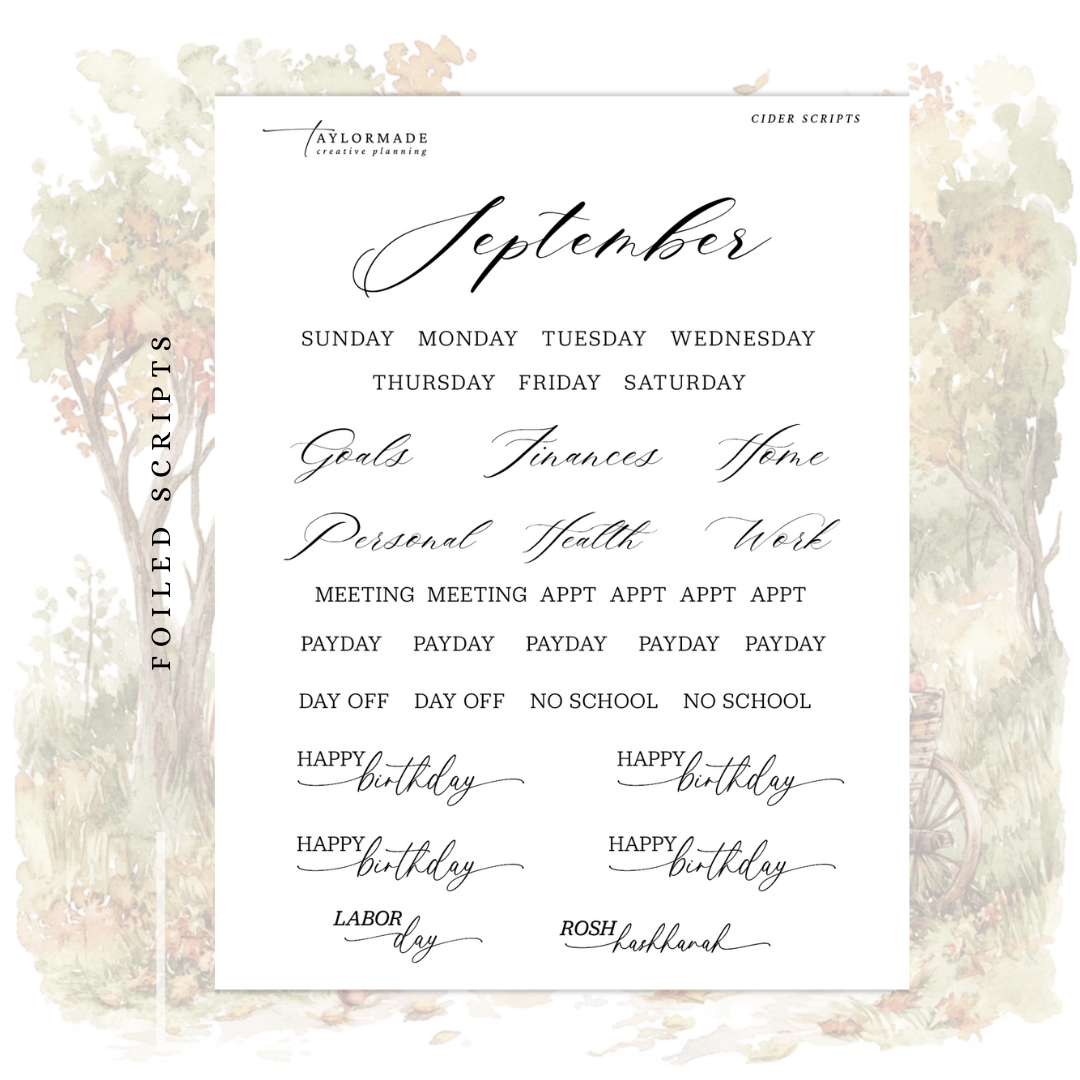 TAYLORMADE
creative planning
CIDER SCRIPTS
FOILED SCRIPTS
September
SUNDAY MONDAY TUESDAY WEDNESDAY
THURSDAY FRIDAY SATURDAY
Goals Finances Home
Personal Health Work
MEETING MEETING APPT APPT APPT APPT
PAYDAY PAYDAY PAYDAY PAYDAY PAYDAY
DAY OFF DAY OFF NO SCHOOL NO SCHOOL
HAPPY birthday HAPPY birthday
HAPPY birthday HAPPY birthday
LABOR day ROSH hashhanah